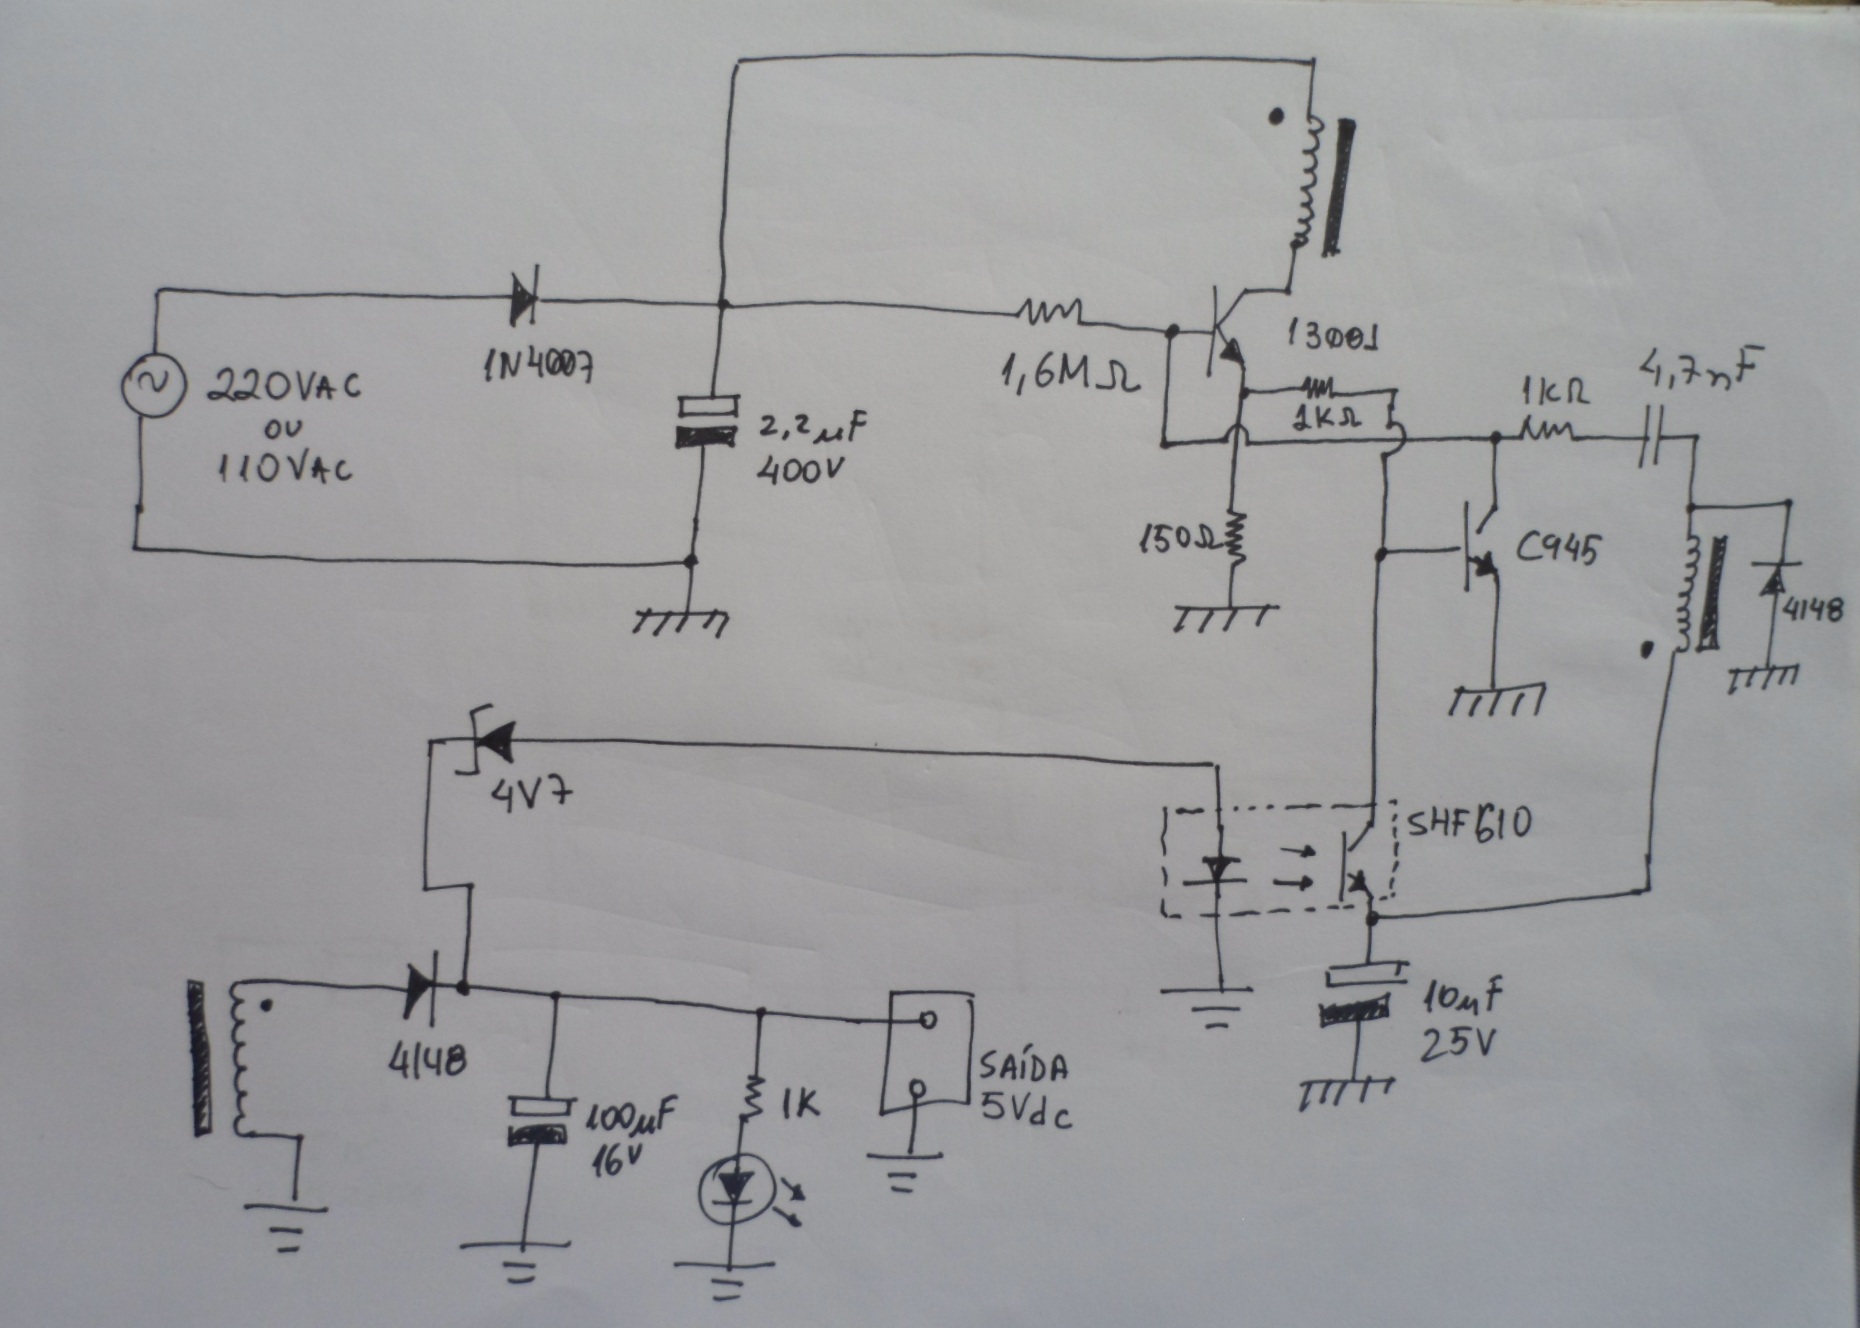 220VAC
ou
110VAC
1N4007
2,2µF
400V
1,6MΩ
13001
1KΩ
150Ω
1KΩ
4,7nF
C945
4148
4V7
SHF610
10µF
25V
4148
100µF
16V
1K
SAÍDA
5Vdc